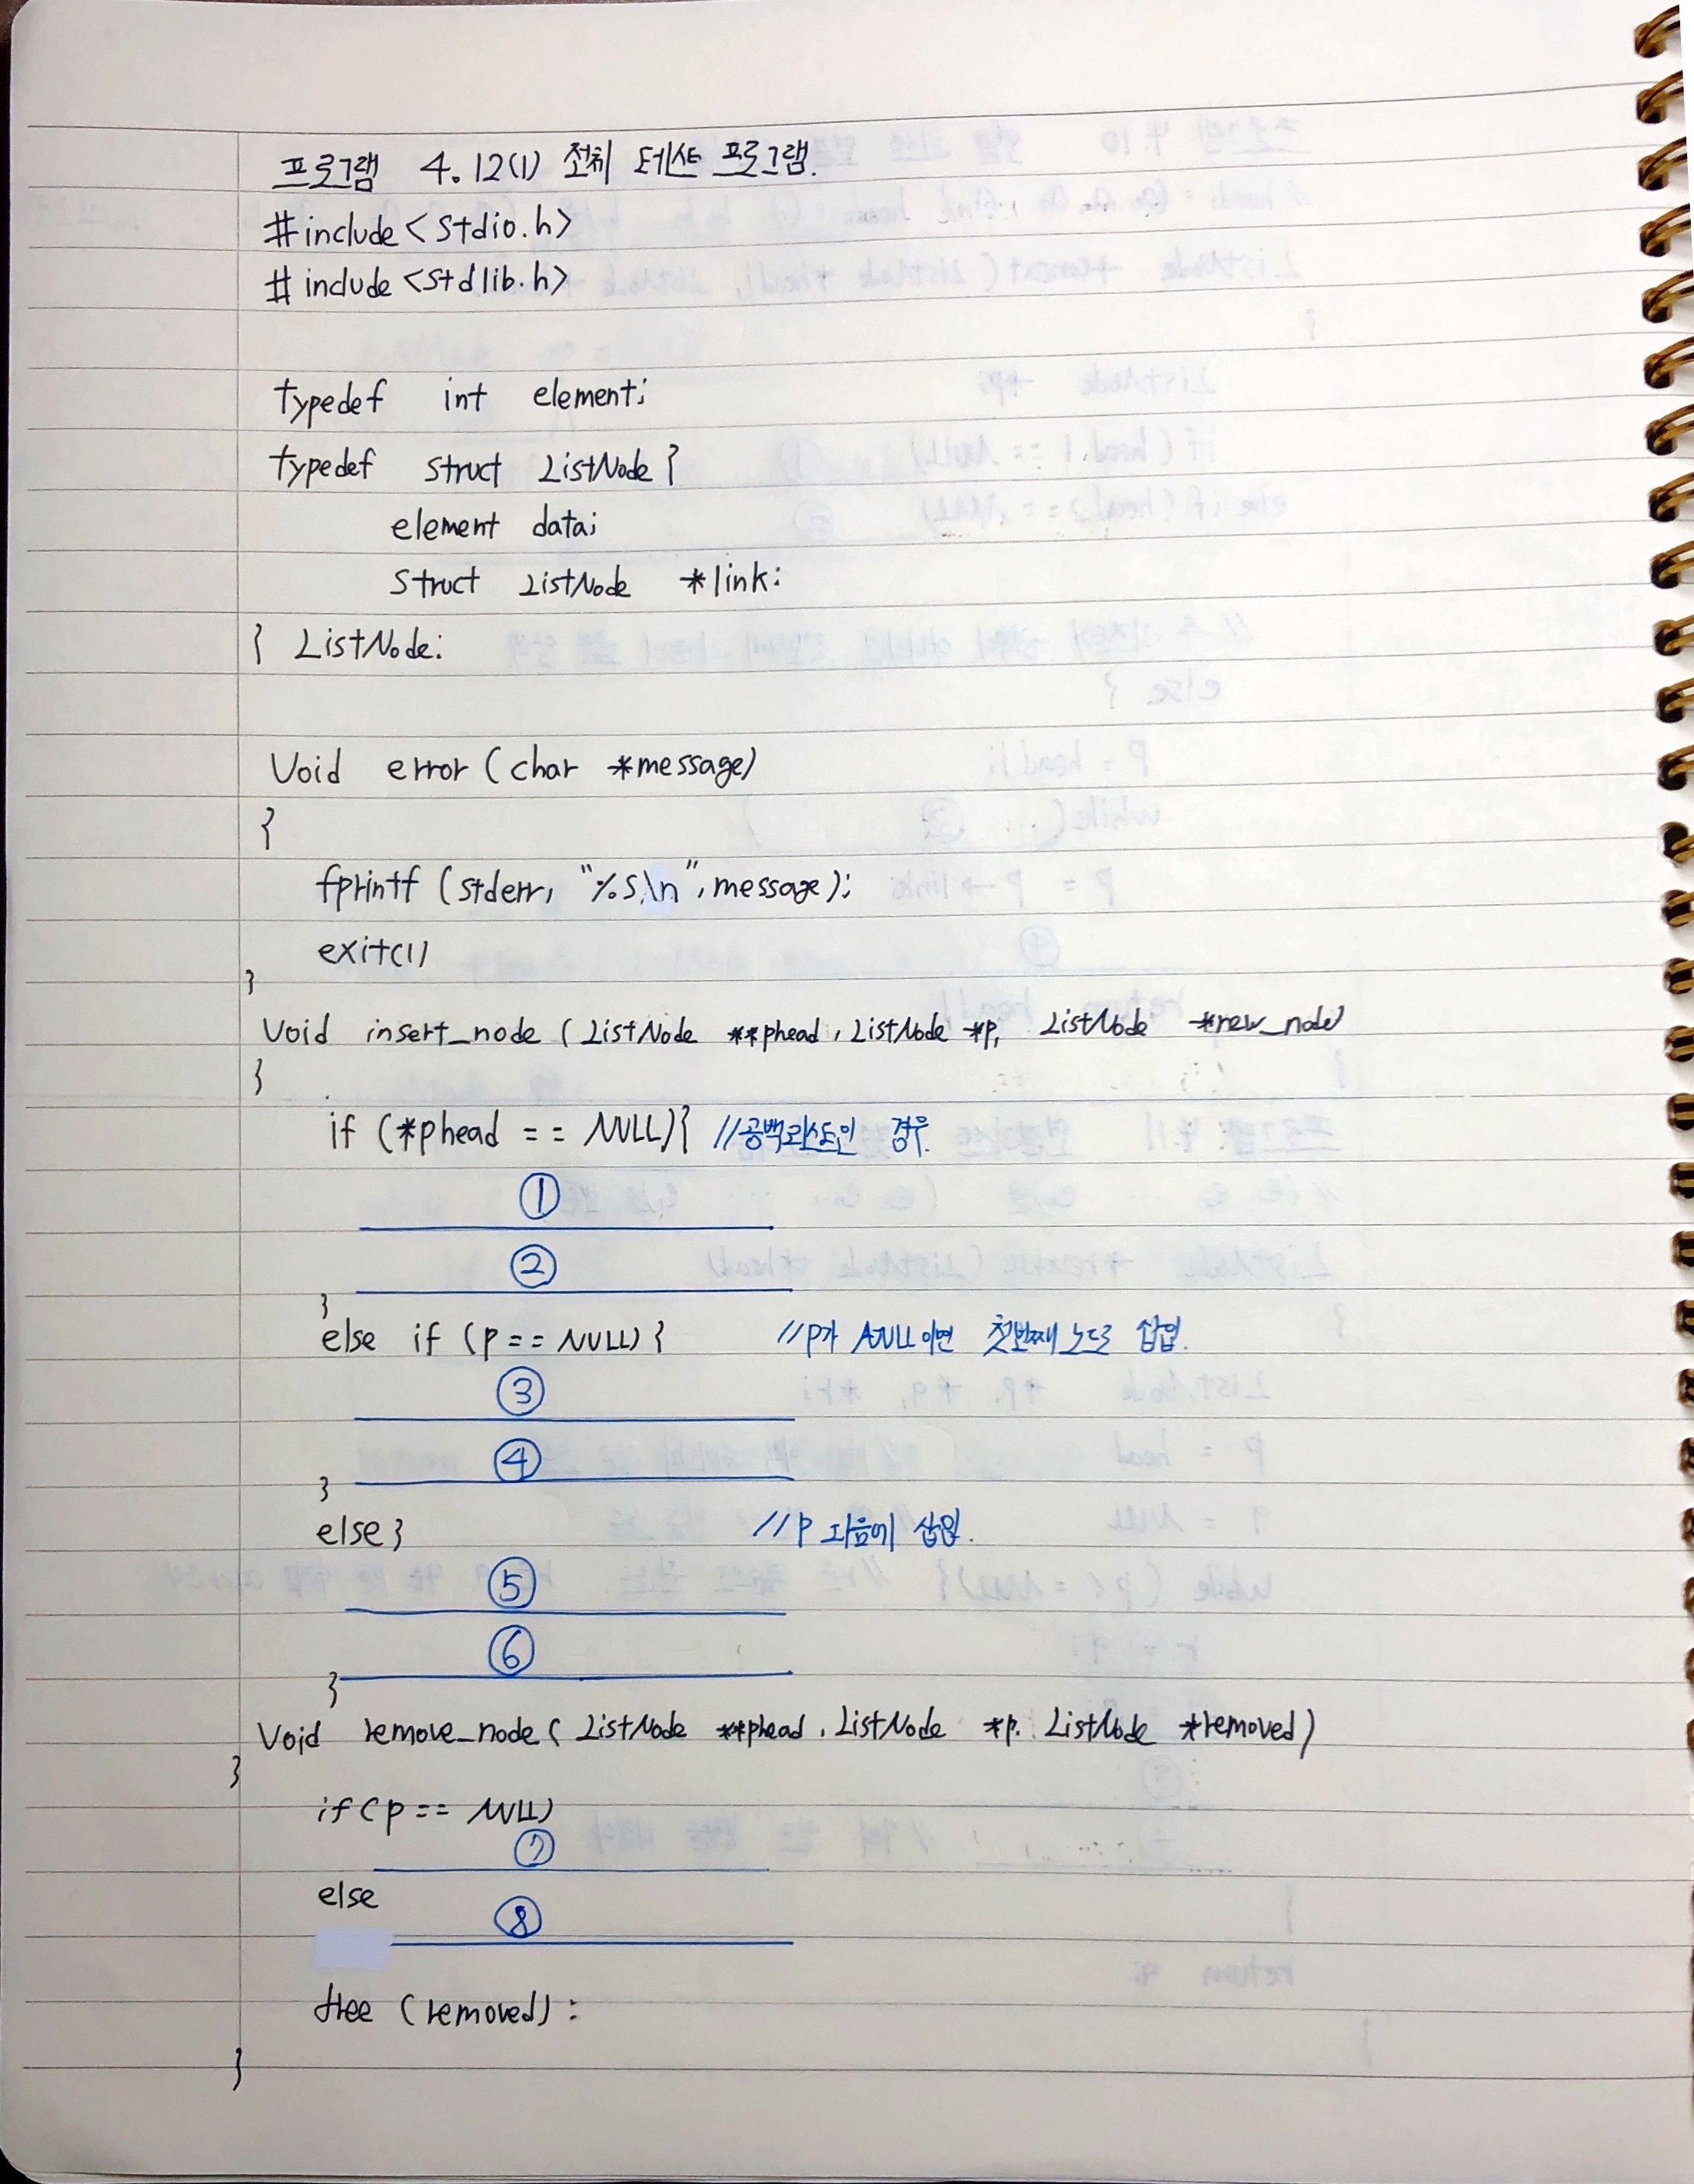 프로그램 4.12(1) 전체 테스트 프로그램.
#include<stdio.h>
#include<stdlib.h>
typedef int element;
typedef struct ListNode {
element data;
struct ListNode *link;
} ListNode;
Void error (char *message)
{
fprintf (stderr, "%s\n", message);
exit(1)
}
Void insert_node (ListNode **phead, ListNode *p, ListNode *new_node)
{
if (*phead == NULL){ //공백리스트인 경우.
①
②
}
else if (p == NULL) { //p가 NULL이면 첫번째 노드로 삽입.
③
④
}
else { //p 다음에 삽입.
⑤
⑥
}
Void remove_node ( ListNode **phead, ListNode *p, ListNode *removed)
{
if (p == NULL)
⑦
else
⑧
free (removed);
}